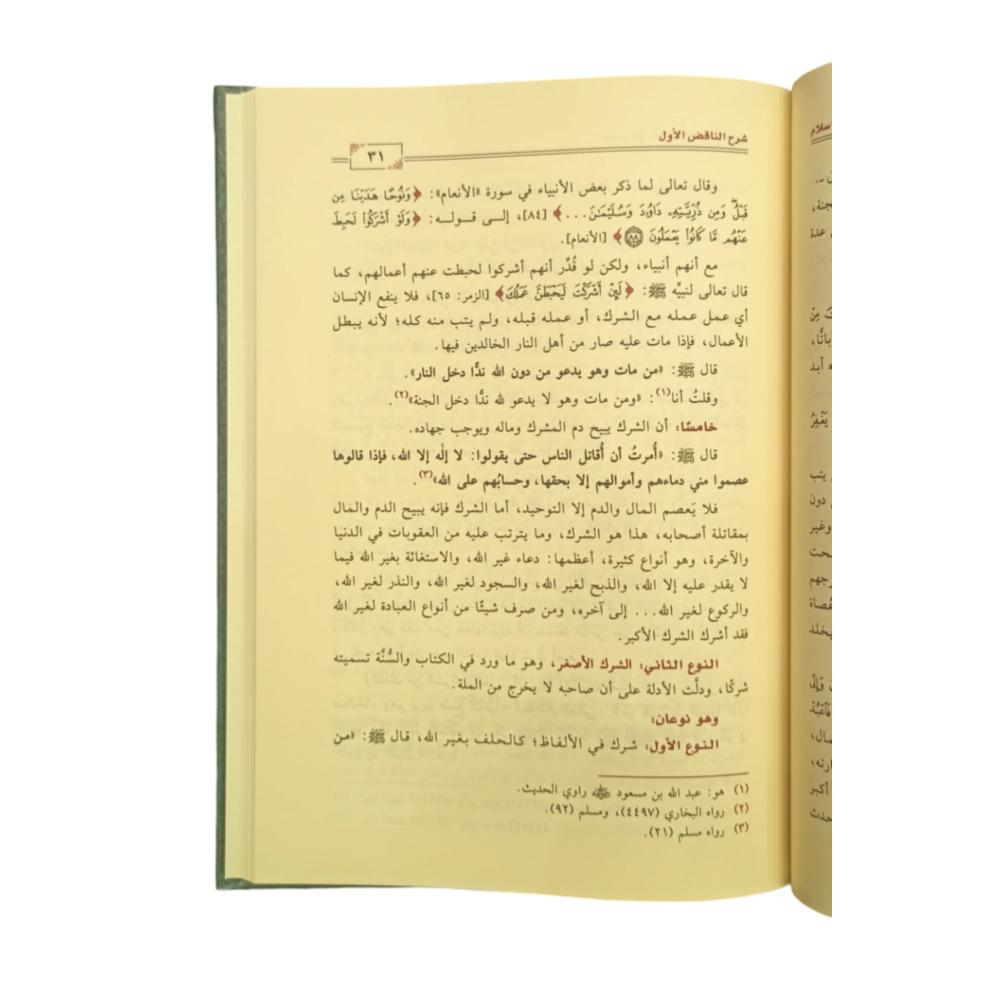 شرح الناقض الأول
٣١
وقال تعالى لما ذكر بعض الأنبياء في سورة «الأنعام»: ﴿وَنُوحًا هَدَيْنَا مِن
قَبْلُ وَمِن ذُرِّيَّتِهِۦ دَاوُۥدَ وَسُلَيْمَـٰنَ...﴾ [٨٤]، إلى قوله: ﴿وَلَوْ أَشْرَكُوا۟ لَحَبِطَ
عَنْهُم مَّا كَانُوا۟ يَعْمَلُونَ ٨٨﴾ [الأنعام].
مع أنهم أنبياء، ولكن لو قُدِّر أنهم أشركوا لحبطت عنهم أعمالهم، كما
قال تعالى لنبيِّه ﷺ: ﴿لَئِنْ أَشْرَكْتَ لَيَحْبَطَنَّ عَمَلُكَ﴾ [الزمر: ٦٥]، فلا ينفع الإنسان
أي عمل عمله مع الشرك، أو عمله قبله، ولم يتب منه كله؛ لأنه يبطل
الأعمال، فإذا مات عليه صار من أهل النار الخالدين فيها.
قال ﷺ: «من مات وهو يدعو من دون الله ندًّا دخل النار».
وقلتُ أنا(١): «ومن مات وهو لا يدعو لله ندًّا دخل الجنة»(٢).
خامسًا: أن الشرك يبيح دم المشرك وماله ويوجب جهاده.
قال ﷺ: «أُمرتُ أن أُقاتل الناس حتى يقولوا: لا إلٰه إلا الله، فإذا قالوها
عصموا مني دماءهم وأموالهم إلا بحقها، وحسابُهم على الله»(٣).
فلا يَعصم المال والدم إلا التوحيد، أما الشرك فإنه يبيح الدم والمال
بمقاتلة أصحابه، هذا هو الشرك، وما يترتب عليه من العقوبات في الدنيا
والآخرة، وهو أنواع كثيرة، أعظمها: دعاء غير الله، والاستغاثة بغير الله فيما
لا يقدر عليه إلا الله، والذبح لغير الله، والسجود لغير الله، والنذر لغير الله،
والركوع لغير الله... إلى آخره، ومن صرف شيئًا من أنواع العبادة لغير الله
فقد أشرك الشرك الأكبر.
النوع الثاني: الشرك الأصغر، وهو ما ورد في الكتاب والسُّنَّة تسميته
شركًا، ودلَّت الأدلة على أن صاحبه لا يخرج من الملة.
وهو نوعان:
النوع الأول: شرك في الألفاظ؛ كالحلف بغير الله، قال ﷺ: «من
(١) هو: عبد الله بن مسعود رضي الله عنه راوي الحديث.
(٢) رواه البخاري (٤٤٩٧)، ومسلم (٩٢).
(٣) رواه مسلم (٢١).